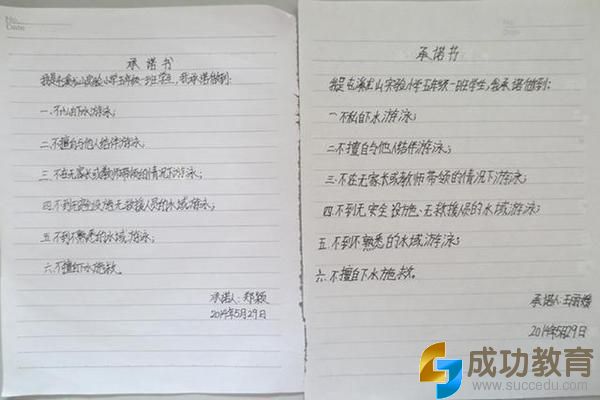 No.
Date
承诺书
我是屯溪龙山实验小学五年级一班学生，我承诺做到：
一.不私自下水游泳；
二.不擅自与他人结伴游泳；
三.不在无家长或教师带领的情况下游泳；
四.不到无安全设施、无救援人员的水域游泳；
五.不到不熟悉的水域游泳；
六.不擅自下水施救。
承诺人：郑颖
2014年5月29日
承诺书
我是屯溪龙山实验小学五年级一班学生，我承诺做到：
一.不私自下水游泳；
二.不擅自与他人结伴游泳；
三.不在无家长或教师带领的情况下游泳；
四.不到无安全设施、无救援人员的水域游泳；
五.不到不熟悉的水域游泳；
六.不擅自下水施救。
承诺人：王
2014年5月29日
成功教育
www.succedu.com